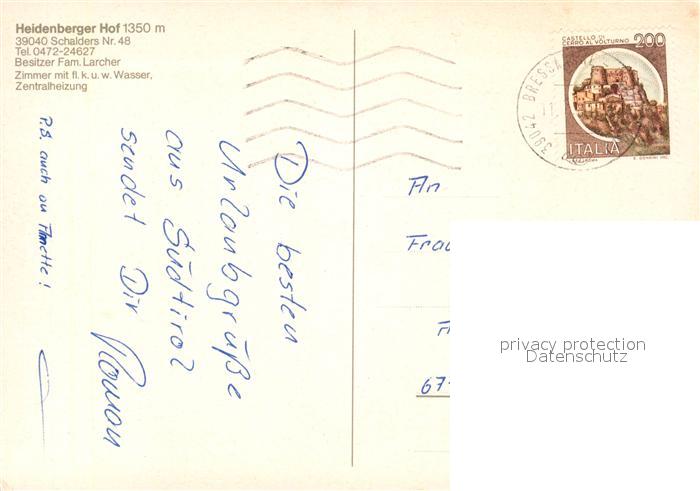 Heidenberger Hof 1350 m
39040 Schalders Nr. 48
Tel. 0472-24627
Besitzer Fam. Larcher
Zimmer mit fl. k. u. w. Wasser,
Zentralheizung
Die besten
Urlaubgrüße
aus Südtirol
sendet Dir
Roman
P.S. auch an Annette!
CASTELLO DI
CERRO AL VOLTURNO
200
ITALIA
39042 BRESSA
An
Frau
67
privacy protection
Datenschutz